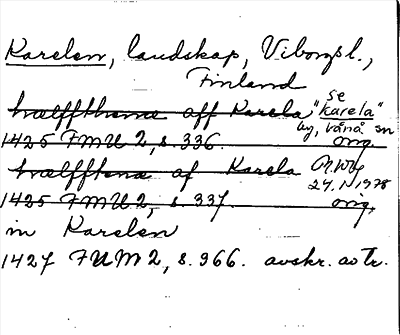 Karelen, landskap, Viborgsl.,
Finland
hwælffthena aff Karela "se "Karela"
by, Vånå sn
1425 FMU 2, s. 336. orig.
hwælfftena af Karela
24.1 1978
1425 FMU 2, s. 337. orig.
in Karelen
1427 FUM 2, s. 366. avskr. av tr.